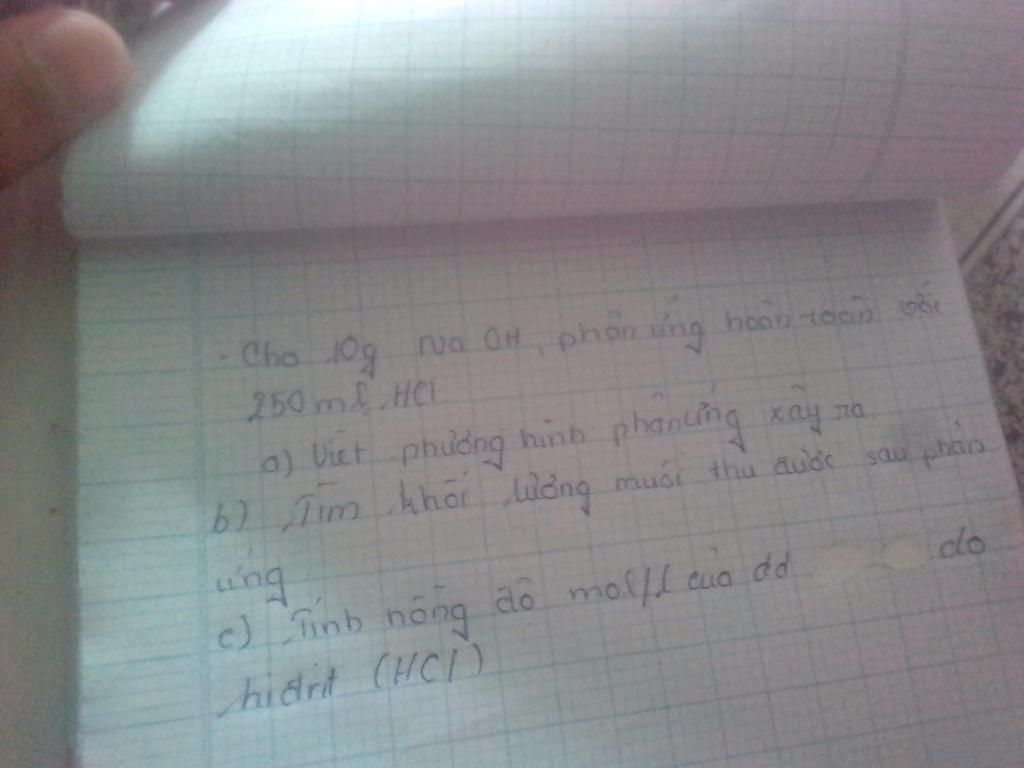 - Cho 10g Na OH, phản ứng hoàn toàn với
250 ml HCl
a) Viết phương trình phản ứng xảy ra.
b) Tìm khối lượng muối thu được sau phản
ứng.
c) Tính nồng độ mol/l của dd do
hiđrit (HCl)